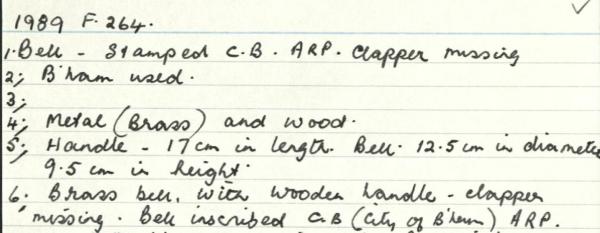 1989 F. 264.
1. Bell - Stamped C.B. ARP. Clapper missing
2; B'ham used.
3;
4; Metal (Brass) and wood.
5; Handle - 17cm in length. Bell. 12.5 cm in diamete
9.5 cm in height.
6. Brass bell, with wooden handle - clapper
missing. Bell inscribed C.B (City of B'ham) ARP.